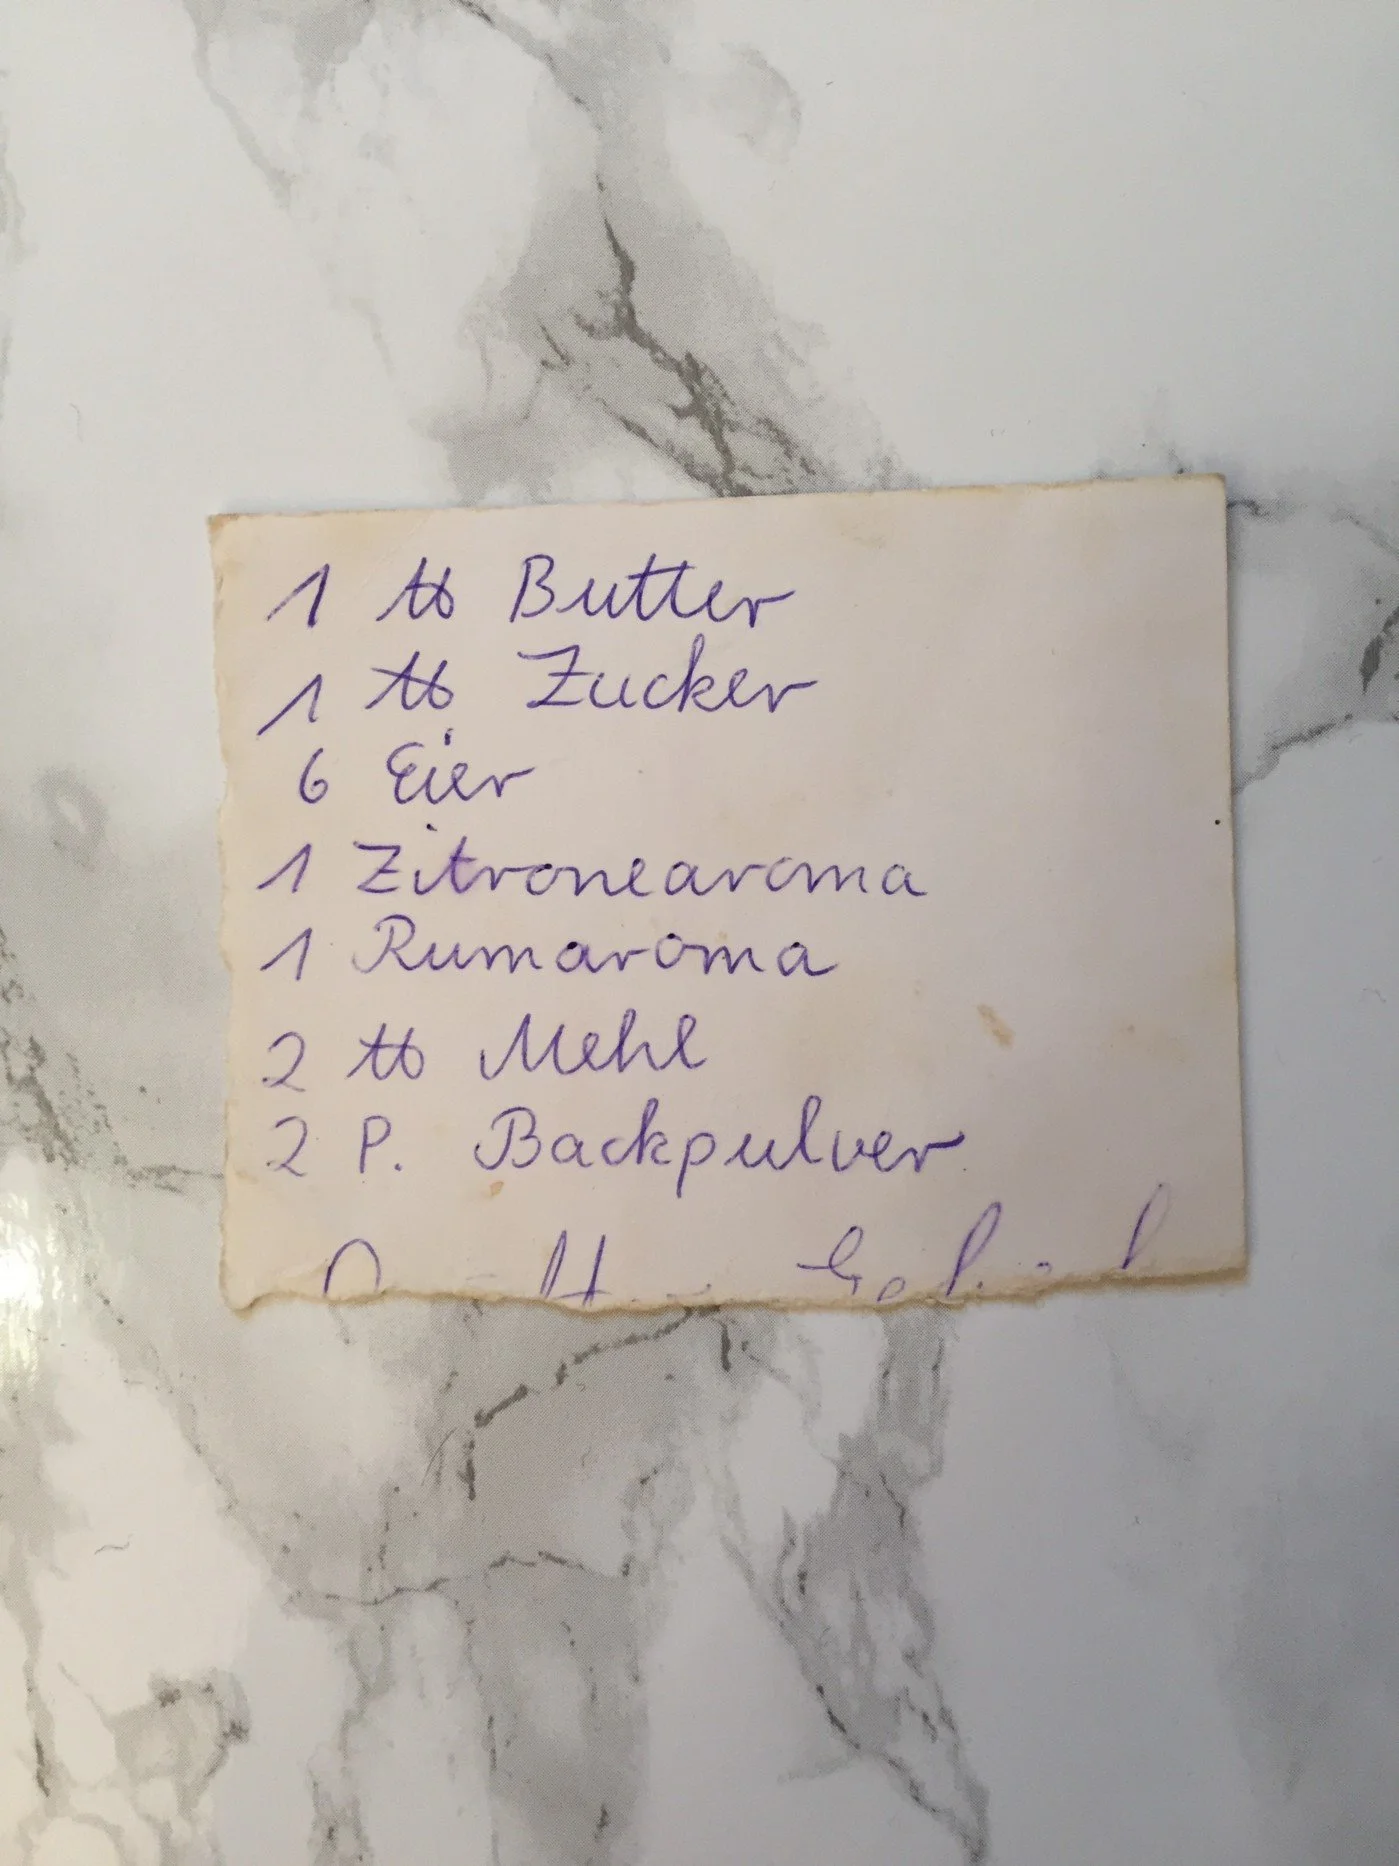 1 ℔ Butter
1 ℔ Zucker
6 Eier
1 Zitronearoma
1 Rumaroma
2 ℔ Mehl
2 P. Backpulver